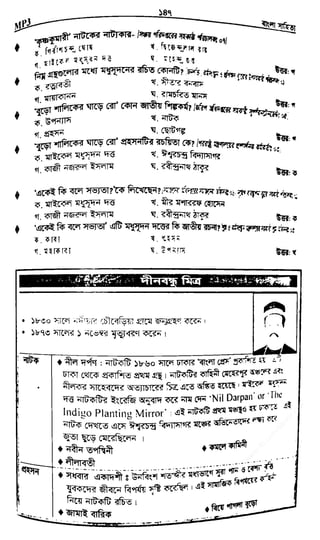 MP3 ১৪৭ বাংলা সাহিত্য
'কৃষ্ণকুমারী' নাটকের নাট্যকার-
ক. গিরিশচন্দ্র ঘোষ খ. দ্বিজেন্দ্রলাল রায়
গ. মাইকেল মধুসূদন দত্ত
নিম্ন গ্রন্থগুলোর মধ্যে মধুসূদনের রচিত কোনটি?
ক. রত্নাবতী
গ. মায়াকানন
'বুড়ো শালিকের ঘাড়ে রোঁ' কোন জাতীয় শিল্পকর্ম?
ক. উপন্যাস খ. নাটক
গ. প্রহসন ঘ. ছোটগল্প
'বুড়ো শালিকের ঘাড়ে রোঁ' প্রহসনটির রচয়িতা কে?
ক. মাইকেল মধুসূদন দত্ত খ. ঈশ্বরচন্দ্র বিদ্যাসাগর
গ. কাজী নজরুল ইসলাম ঘ. রবীন্দ্রনাথ ঠাকুর
'একেই কি বলে সভ্যতা'? কে লিখেছেন?
ক. মাইকেল মধুসূদন দত্ত খ. মীর মশাররফ হোসেন
গ. কাজী নজরুল ইসলাম ঘ. রবীন্দ্রনাথ ঠাকুর
'একেই কি বলে সভ্যতা' এটি মধুসূদন দত্তের কি জাতীয় রচনা?
ক. কাব্য খ. প্রহসন
গ. মহাকাব্য ঘ. উপন্যাস
দীনবন্ধু মিত্র
• ১৮৩০ সালে নদীয়ার চৌবেড়িয়া গ্রামে জন্মগ্রহণ করেন।
• ১৮৭৩ সালের ১ নভেম্বর মৃত্যুবরণ করেন।
নাটক ♦ নীল দর্পণ : নাটকটি ১৮৬০ সালে ঢাকার 'বাংলা প্রেস'
ঢাকা থেকে প্রকাশিত প্রথম গ্রন্থ। নাটকটির কাহিনী মেহেরপুর অঞ্চলের এবং
নীলকর সাহেবদের অত্যাচারের চিত্র এতে অঙ্কিত হয়েছে। মাইকেল মধুসূদন
দত্ত নাটকটির ইংরেজি অনুবাদ করে নাম দেন 'Nil Darpan' or 'The
Indigo Planting Mirror'। এই নাটকটি প্রথম মঞ্চস্থ হয় ঢাকাতে এই
নাটক দেখতে এসে ঈশ্বরচন্দ্র বিদ্যাসাগর মঞ্চের
জুতা ছুড়ে মেরেছিলেন।
♦ নবীন তপস্বিনী ♦ কমলে কামিনী
♦ লীলাবতী
প্রহসন ♦ সধবার একাদশী : ঊনবিংশ শতাব্দীর
যুবকদের জীবনে বিপর্যয় সৃষ্টি করেছিল। এই সামাজিক বিপর্যয়ের কাহিনী
নিয়ে নাটকটি রচিত।
♦ জামাই বারিক ♦ বিয়ে পাগলা বুড়ো